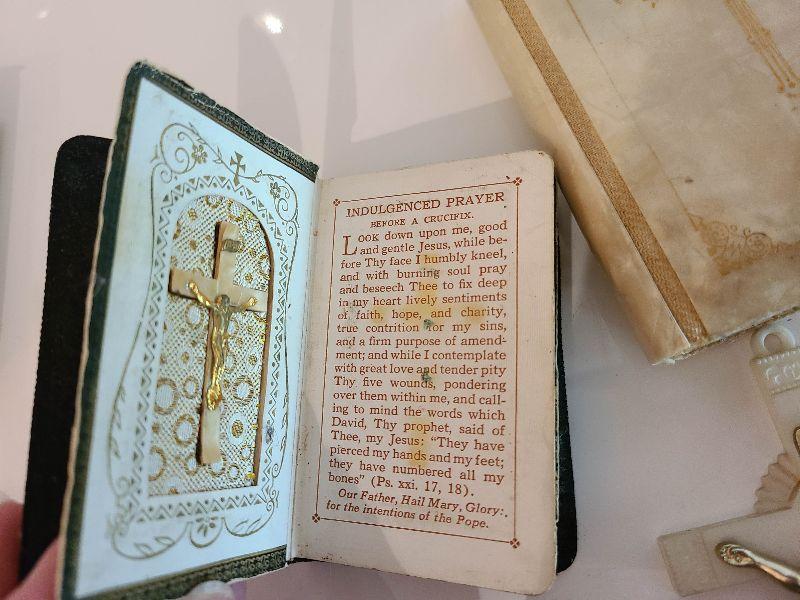 INDULGENCED PRAYER
BEFORE A CRUCIFIX.
LOOK down upon me, good
and gentle Jesus, while be-
fore Thy face I humbly kneel,
and with burning soul pray
and beseech Thee to fix deep
in my heart lively sentiments
of faith, hope, and charity,
true contrition for my sins,
and a firm purpose of amend-
ment; and while I contemplate
with great love and tender pity
Thy five wounds, pondering
over them within me, and call-
ing to mind the words which
David, Thy prophet, said of
Thee, my Jesus: "They have
pierced my hands and my feet;
they have numbered all my
bones" (Ps. xxi. 17, 18).
Our Father, Hail Mary, Glory:
for the intentions of the Pope.